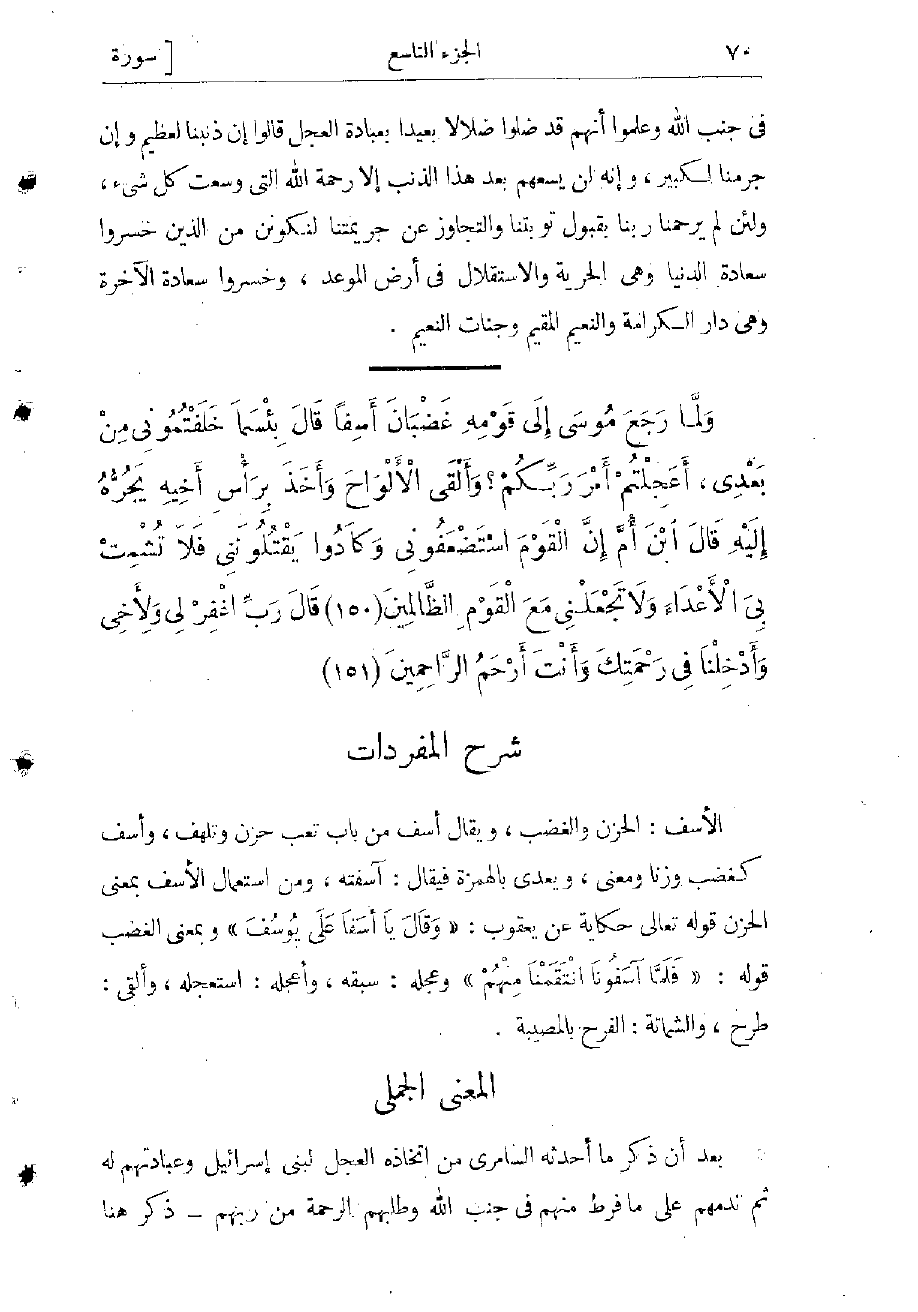 ٧٠ الجزء التاسع [ سورة
فى جنب الله وعلموا أنهم قد ضلوا ضلالا بعيدا بعبادة العجل قالوا إن ذنبنا لعظيم وإن
جرمنا لكبير ، وإنه لن يسعهم بعد هذا الذنب إلا رحمة الله التى وسعت كل شىء ،
ولئن لم يرحمنا ربنا بقبول توبتنا والتجاوز عن جريمتنا لنكونن من الذين خسروا
سعادة الدنيا وهى الحرية والاستقلال فى أرض الموعد ، وخسروا سعادة الآخرة
وهى دار الكرامة والنعيم المقيم وجنات النعيم .
وَلَمَّا رَجَعَ مُوسَى إِلَى قَوْمِهِ غَضْبَانَ أَسِفًا قَالَ بِئْسَمَا خَلَفْتُمُونِى مِنْ
بَعْدِى ، أَعَجِلْتُمْ أَمْرَ رَبِّكُمْ ؟ وَأَلْقَى الْأَلْوَاحَ وَأَخَذَ بِرَأْسِ أَخِيهِ يَجُرُّهُ
إِلَيْهِ قَالَ ابْنَ أُمَّ إِنَّ الْقَوْمَ اسْتَضْعَفُونِى وَكَادُوا يَقْتُلُونَنِى فَلَا تُشْمِتْ
بِىَ الْأَعْدَاءَ وَلَا تَجْعَلْنِى مَعَ الْقَوْمِ الظَّالِمِينَ (١٥٠) قَالَ رَبِّ اغْفِرْ لِى وَلِأَخِى
وَأَدْخِلْنَا فِى رَحْمَتِكَ وَأَنْتَ أَرْحَمُ الرَّاحِمِينَ (١٥١)
شرح المفردات
الأسف : الحزن والغضب ، ويقال أسف من باب تعب حزن وتلهف ، وأسف
كغضب وزنا ومعنى ، ويعدى بالهمزة فيقال : آسفته ، ومن استعمال الأسف بمعنى
الحزن قوله تعالى حكاية عن يعقوب : « وَقَالَ يَا أَسَفَا عَلَى يُوسُفَ » وبمعنى الغضب
قوله : « فَلَمَّا آسَفُونَا انْتَقَمْنَا مِنْهُمْ » وعجله : سبقه ، وأعجله : استعجله ، وألقى :
طرح ، والشماتة : الفرح بالمصيبة .
المعنى الجملى
بعد أن ذكر ما أحدثه السامرى من اتخاذه العجل لبنى إسرائيل وعبادتهم له
ثم ندمهم على ما فرط منهم فى جنب الله وطلبهم الرحمة من ربهم – ذكر هنا